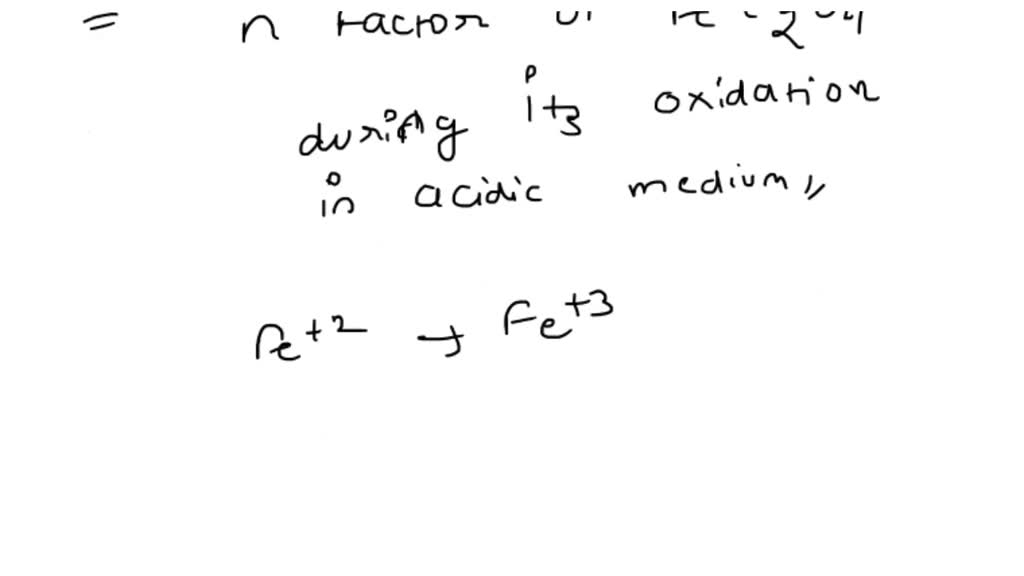 = n factor
during its oxidation
in acidic medium,
Fe+2 → Fe+3